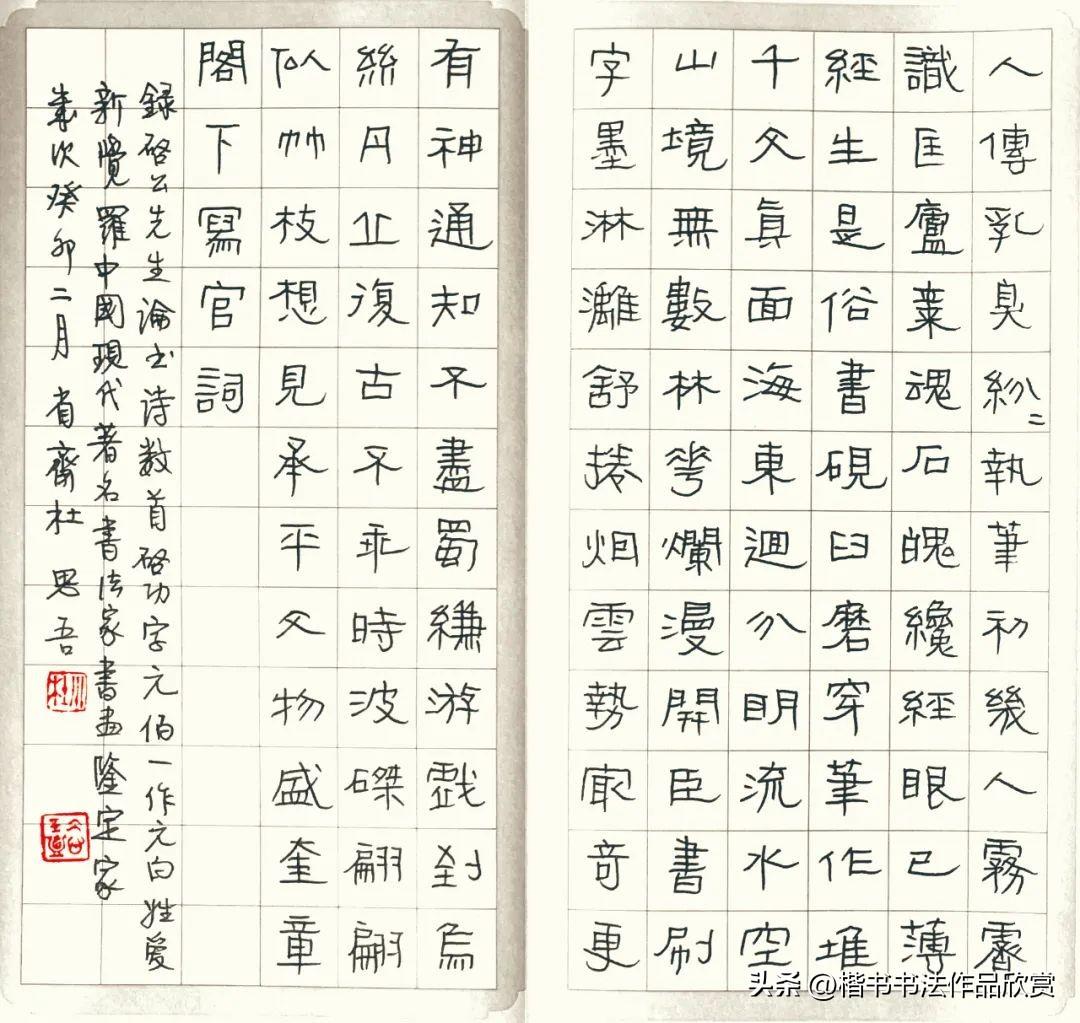 人傳乳臭紛〻執筆初幾人霧霽
識匡廬棗魂石魄纔經眼已薄
經生是俗書硯臼磨穿筆作堆
千文眞面海東迴分明流水空
山境無數林花爛漫開臣書刷
字墨淋灕舒捲烟雲勢最奇更
有神通知不盡蜀縑游戲到烏
絲丹丘復古不乖時波磔翩翩
似竹枝想見承平文物盛奎章
閣下寫官詞
録啓公先生論书诗数首啓功字元伯一作元白姓爱
新覺羅中國現代著名書法家書画鉴定家
歲次癸卯二月省齋杜思吾
头条 @楷书书法作品欣赏